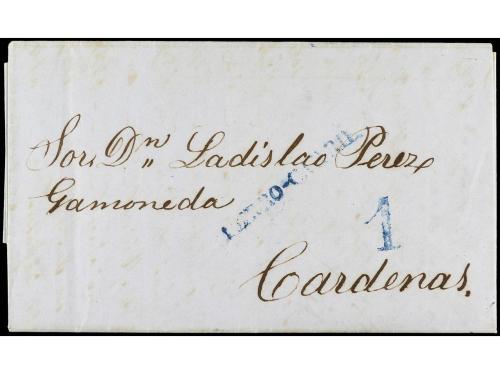 Sor, Dn,, Ladislao Perez
Gamoneda
1
Cardenas.